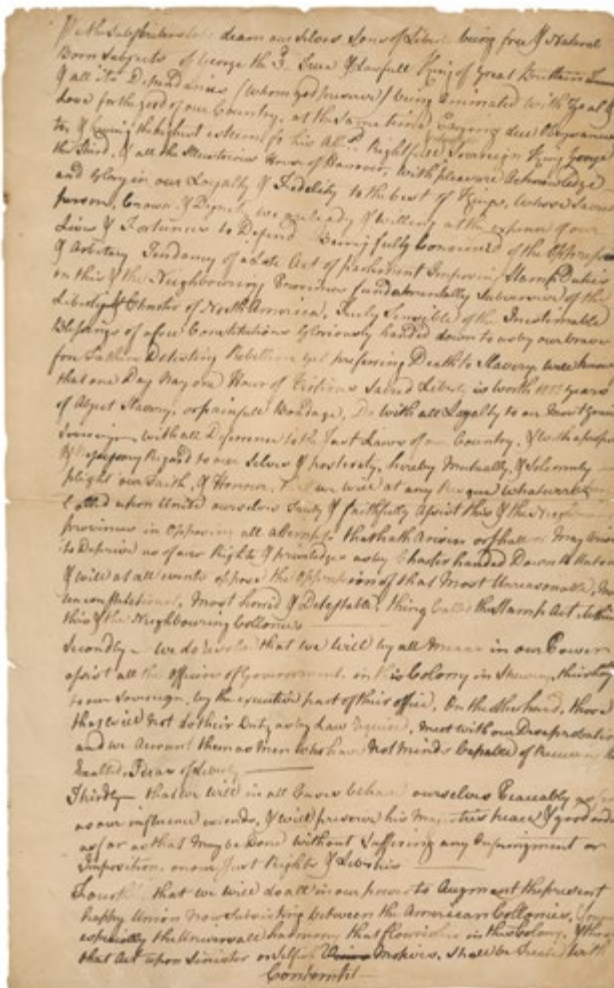 We the Subscribers do deem our Selves Sons of Liberty being free & Natural
Born Subjects of George the 3 True & Lawfull King of Great Brittain
& all its Dependancies (whom god preserve) being animated with Zeal &
Love for the good of our Country, at the same time Due Obeysance
to, & having the highest esteem for his Rightfull Sovereign King George
the Third, & all the Illustrious House of Hanover, with pleasure Acknowledge
and Glory in our Loyalty & Fidelity to the best of Kings, whose Sacred
person, Crown & Dignity we are ready & willing at the expence of our
Lives & Fortunes to Defend Being fully Convinced of the
& Arbitrary Tendancy of a Late Act of parliment Imposing Stamp Duties
on this & the Neighbouring Provinces fundamentally Subversive of the
Liberty & Charter of North America, Truly Sensible of the Inestimable
Blessings of a free Constitution Gloriously handed down to us by our brave
fore Fathers Detesting Rebellion yet preferring Death to Slavery
that one Day Nay one Hour of Sacred Liberty is worth years
of Abject Slavery, or painfull Bondage, Do with all Loyalty to our
Sovereign with all Deference to the Just Laws of our Country, & with a
Regard to our Selves & posterity, hereby Mutually, & Solemnly
plight our Faith, & Honour, we will at any whatever
Called upon Unite ourselves Truly & faithfully Assist this & the
provinces in Opposing all attempts that hath Arisen or shall or May
to Deprive us of our Rights & priviledges as by Charter handed Down
& will at all events oppose the Oppression of that Most Unreasonable,
unconstitutional, Most horrid & Detestable, thing Called the Stamp Act
this & the Neighbouring Collonies
Secondly we do that we will by all Means in our Power
assist all the Officers of Government, in this Colony in
to our Sovereign, by the executive part of their office, On the other hand, those
that will not do their Duty as by Law require, must with our
and we Account them as Men who have Not Minds Capable of
Exalted, Ideas of Liberty
Thirdly that we will in all Cases behave ourselves Peaceably
as our influence extends, & will preserve his Majesties peace & good
as far as that May be Done without Suffering any Infringment or
Imposition, on our Just Rights & Liberties
that we will do all in our power to Augment the present
happy Union Now Subsisting between the American Collonies,
especially the Universall harmony that flourishes in this Colony, &
that Act upon Sinister or Selfish Motives, shall be with
Contempt